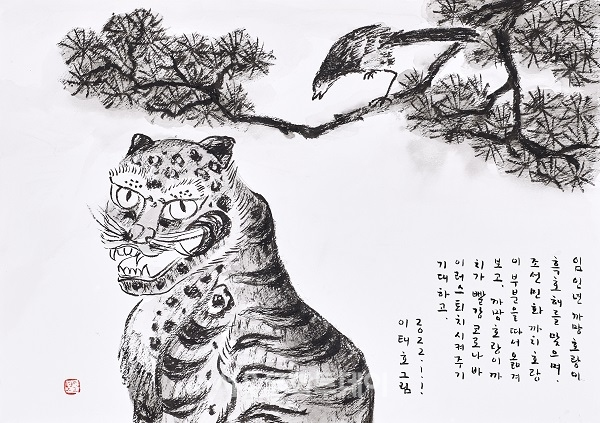 임인년 까망호랑이
흑호해를 맞으며,
조선민화 까치호랑
이 부분을 따서 옮겨
보고, 까망호랑이까
치가 빨강코로나바
이러스퇴치시켜주기
기대하고.
2022.1.1
이태호그림